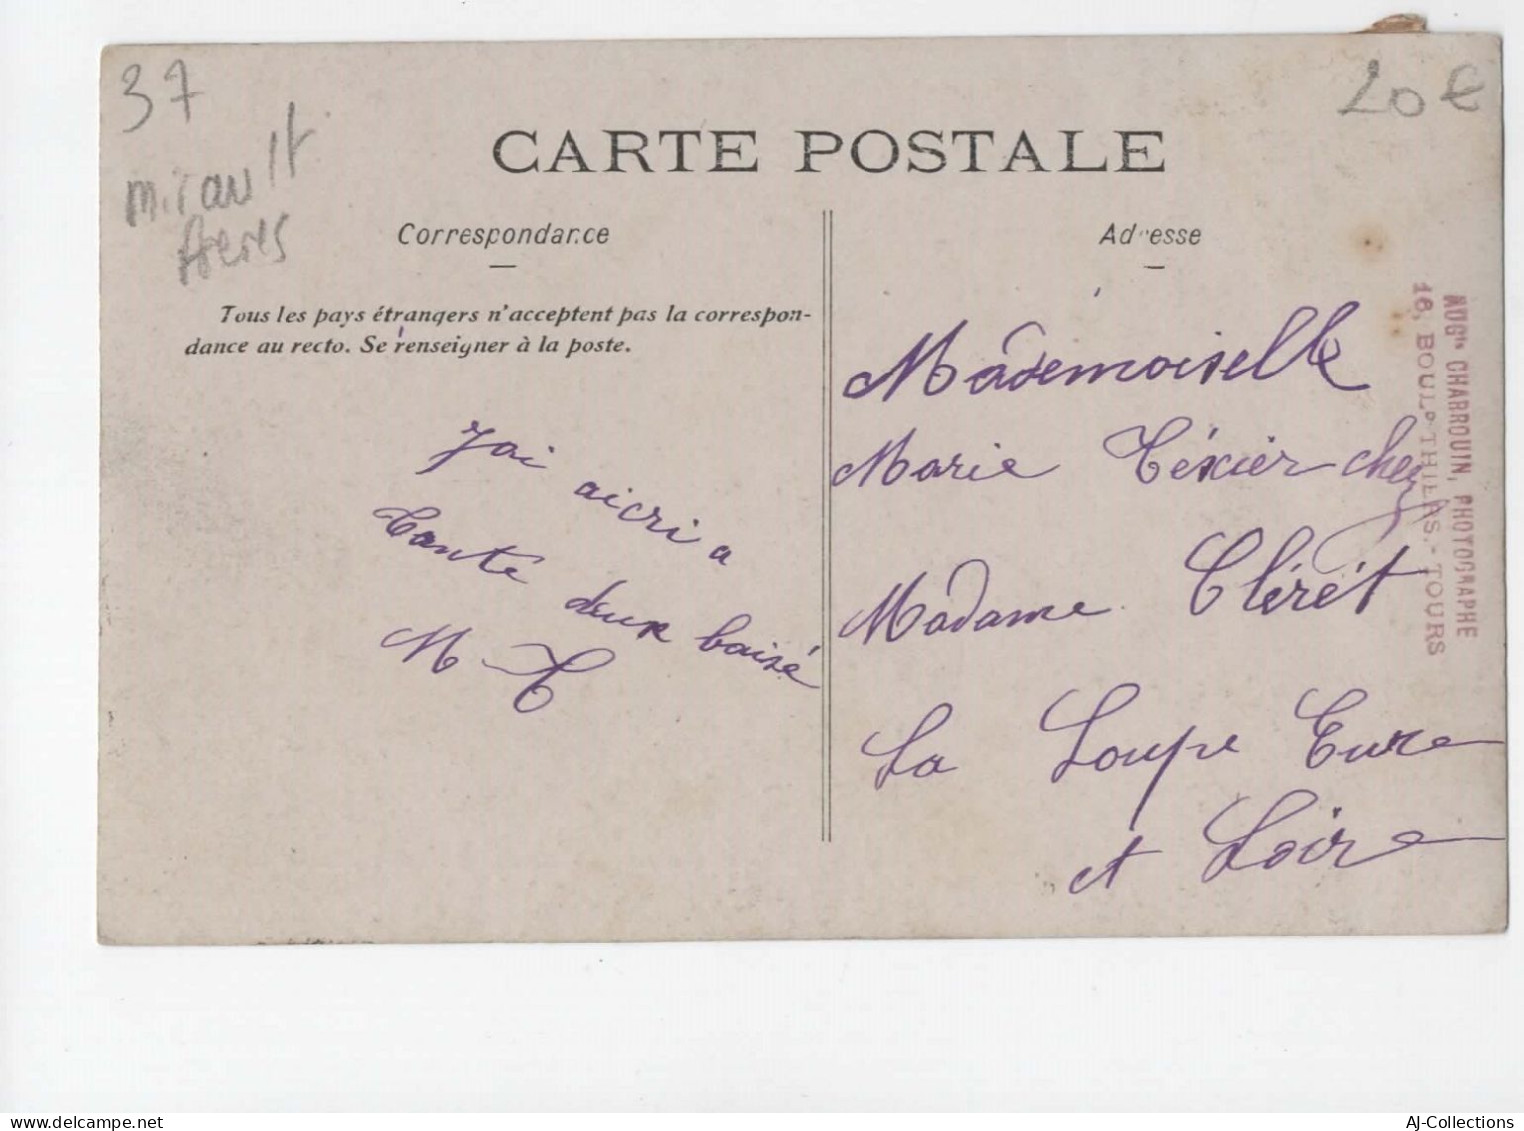 37
20€
Mirault
frères
CARTE POSTALE
Correspondance
Adresse
Tous les pays étrangers n'acceptent pas la correspon-
dance au recto. Se renseigner à la poste.
J'ai aicri a
tante deux baisé
M T
Mademoiselle
Marie Téxier chez
Madame Clérét
La Loupe Eure
et Loire
AUGte CHARROUIN, PHOTOGRAPHE
16, BOULD THIERS.- TOURS
AJ-Collections